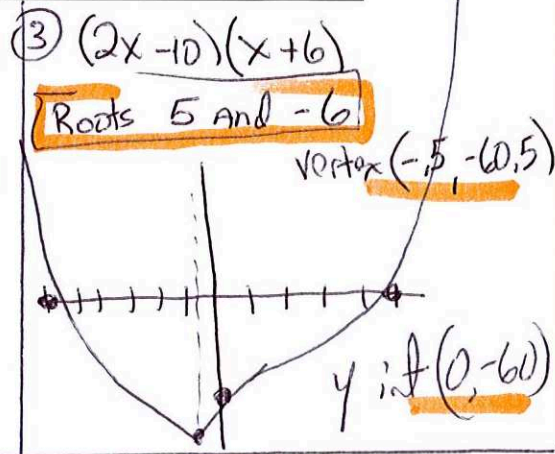 ③ (2x-10)(x+6)
Roots 5 and -6
vertex (-.5, -60.5)
y int (0, -60)